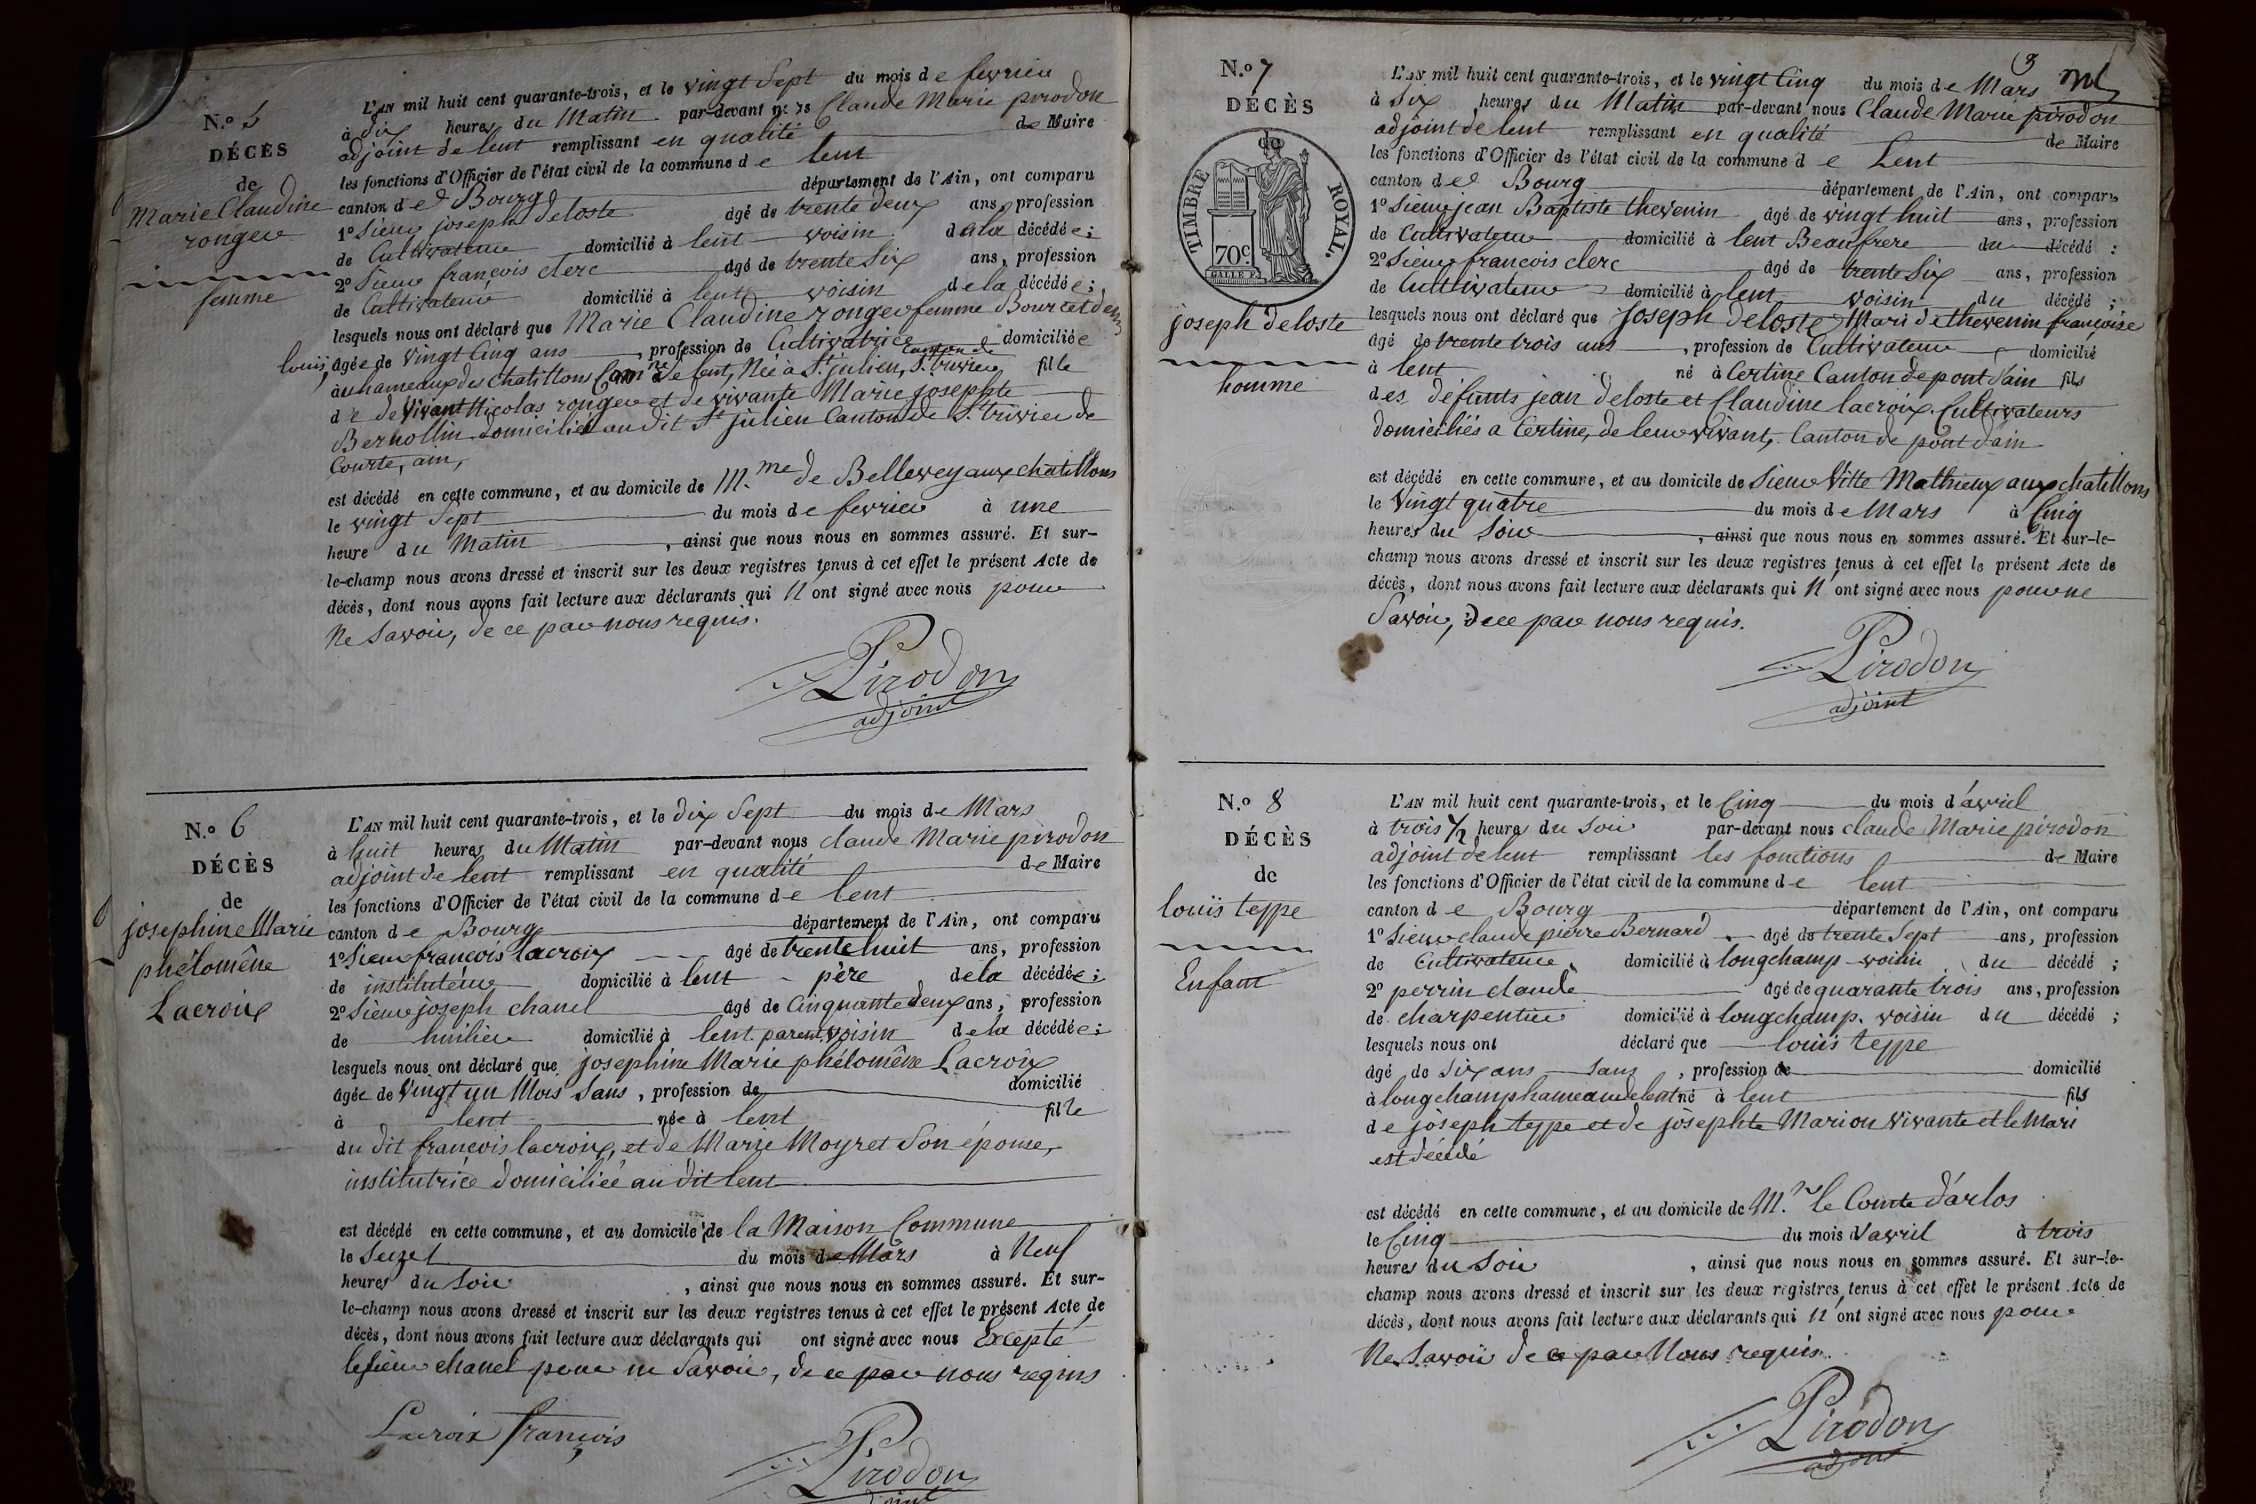 N.o 5
DÉCÈS
de
Marie Claudine
rongeu
femme
L'AN mil huit cent quarante-trois, et le vingt Sept du mois de fevrieu
à dix heures du Matin par-devant nous Claude Marie pirodon
adjoint de lent remplissant en qualité de Maire
les fonctions d'Officier de l'état civil de la commune de lent
canton de Bourg département de l'Ain, ont comparu
1o Sieur joseph deloste âgé de trente deux ans, profession
de Cultivateur domicilié à lent voisin de la décédée;
2o Sieur françois clerc âgé de trente Six ans, profession
de Cultivateur domicilié à lent voisin de la décédée;
lesquels nous ont déclaré que Marie Claudine rongeu femme Bourcet
louis, âgée de vingt Cinq ans, profession de Cultivatrice domiciliée
canton de
au hameaux des chatillons Comne de lent, Née à St julien, St trivier fille
de de Vivant Nicolas rongeu et de vivante Marie josephte
Bernollin domiciliés au dit St julien Canton de St trivier de
Courte, ain,
est décédé en cette commune, et au domicile de M.me de Bellevey aux chatillons
le vingt Sept du mois de fevrieu à une
heure du Matin, ainsi que nous nous en sommes assuré. Et sur-
le-champ nous avons dressé et inscrit sur les deux registres tenus à cet effet le présent Acte de
décès, dont nous avons fait lecture aux déclarants qui N'ont signé avec nous pour
Ne Savoir, de ce par nous requis.
Pirodon
adjoint
N.o 6
DÉCÈS
de
josephine Marie
phélomêne
Lacroix
L'AN mil huit cent quarante-trois, et le dix Sept du mois de Mars
à huit heures du Matin par-devant nous claude Marie pirodon
adjoint de lent remplissant en qualité de Maire
les fonctions d'Officier de l'état civil de la commune de lent
canton de Bourg département de l'Ain, ont comparu
1o Sieur françois lacroix âgé de trente huit ans, profession
de instituteur domicilié à lent père de la décédée;
2o Sieur joseph chanel âgé de Cinquante deux ans, profession
de huilier domicilié à lent parent, voisin de la décédée;
lesquels nous ont déclaré que josephine Marie phélomêne Lacroix
âgée de Vingt un Mois Sans, profession de domicilié
à lent née à lent fille
du dit françois lacroix, et de Marie Moyret Son épouse,
institutrice domiciliée au dit lent
est décédé en cette commune, et au domicile de la Maison Commune
le Seize du mois de Mars à Neuf
heures du Soir, ainsi que nous nous en sommes assuré. Et sur-
le-champ nous avons dressé et inscrit sur les deux registres tenus à cet effet le présent Acte de
décès, dont nous avons fait lecture aux déclarants qui ont signé avec nous Excepté
le sieur chanel pour ne Savoir, de ce par nous requis
Lacroix françois
Pirodon
adjoint
3
N.o 7
DÉCÈS
de
TIMBRE ROYAL.
70c
joseph deloste
homme
L'AN mil huit cent quarante-trois, et le vingt Cinq du mois de Mars
à Six heures du Matin par-devant nous Claude Marie pirodon
adjoint de lent remplissant en qualité de Maire
les fonctions d'Officier de l'état civil de la commune de Lent
canton de Bourg département de l'Ain, ont comparu
1o Sieur jean Baptiste thevenin âgé de vingt huit ans, profession
de Cultivateur domicilié à lent Beaufrere du décédé;
2o Sieur francois clerc âgé de trente Six ans, profession
de Cultivateur domicilié à lent voisin du décédé;
lesquels nous ont déclaré que joseph deloste, Mari de thevenin françoise
âgé de trente trois ans, profession de Cultivateur domicilié
à lent né à Certine Canton de pont d'ain fils
des défunts jean deloste et Claudine lacroix Cultivateurs
domiciliés a Certine, de leur vivant, Canton de pont d'ain
est décédé en cette commune, et au domicile de Sieur Vitte Mathieux aux chatillons
le Vingt quatre du mois de Mars à Cinq
heures du Soir, ainsi que nous nous en sommes assuré. Et sur-le-
champ nous avons dressé et inscrit sur les deux registres tenus à cet effet le présent Acte de
décès, dont nous avons fait lecture aux déclarants qui N'ont signé avec nous pour ne
Savoir, de ce par nous requis.
Pirodon
adjoint
N.o 8
DÉCÈS
de
louïs teppe
Enfant
L'AN mil huit cent quarante-trois, et le Cinq du mois d'avril
à trois 1/2 heures du Soir par-devant nous claude Marie pirodon
adjoint de lent remplissant les fonctions de Maire
les fonctions d'Officier de l'état civil de la commune de lent
canton de Bourg département de l'Ain, ont comparu
1o Sieur claude pierre Bernard âgé de trente Sept ans, profession
de Cultivateur domicilié à longchamp voisin du décédé;
2o perrin claude âgé de quarante trois ans, profession
de charpentier domicilié à longchamp. voisin du décédé;
lesquels nous ont déclaré que louïs teppe
âgé de Six ans Sans, profession de domicilié
à longchamp hameau de lent né à lent fils
de joseph teppe et de josephte Marion vivante et le Mari
est décédé
est décédé en cette commune, et au domicile de M.r le Comte d'arlos
le Cinq du mois d'avril à trois
heures du Soir, ainsi que nous nous en sommes assuré. Et sur-le-
champ nous avons dressé et inscrit sur les deux registres tenus à cet effet le présent Acte de
décès, dont nous avons fait lecture aux déclarants qui N'ont signé avec nous pour
Ne Savoir de ce par Nous requis.
Pirodon
adjoint